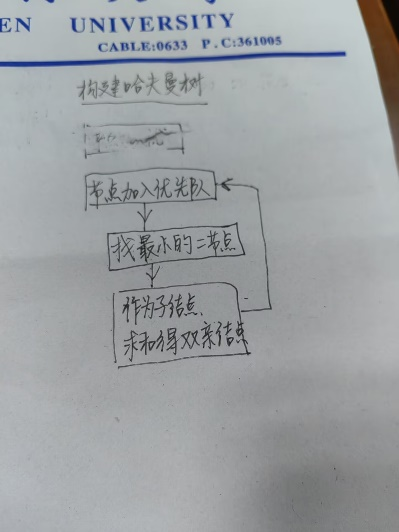 EN UNIVERSITY
CABLE:0633 P.C:361005
构建哈夫曼树
节点加入优先队
找最小的二节点
作为子结点
求和得双亲结点